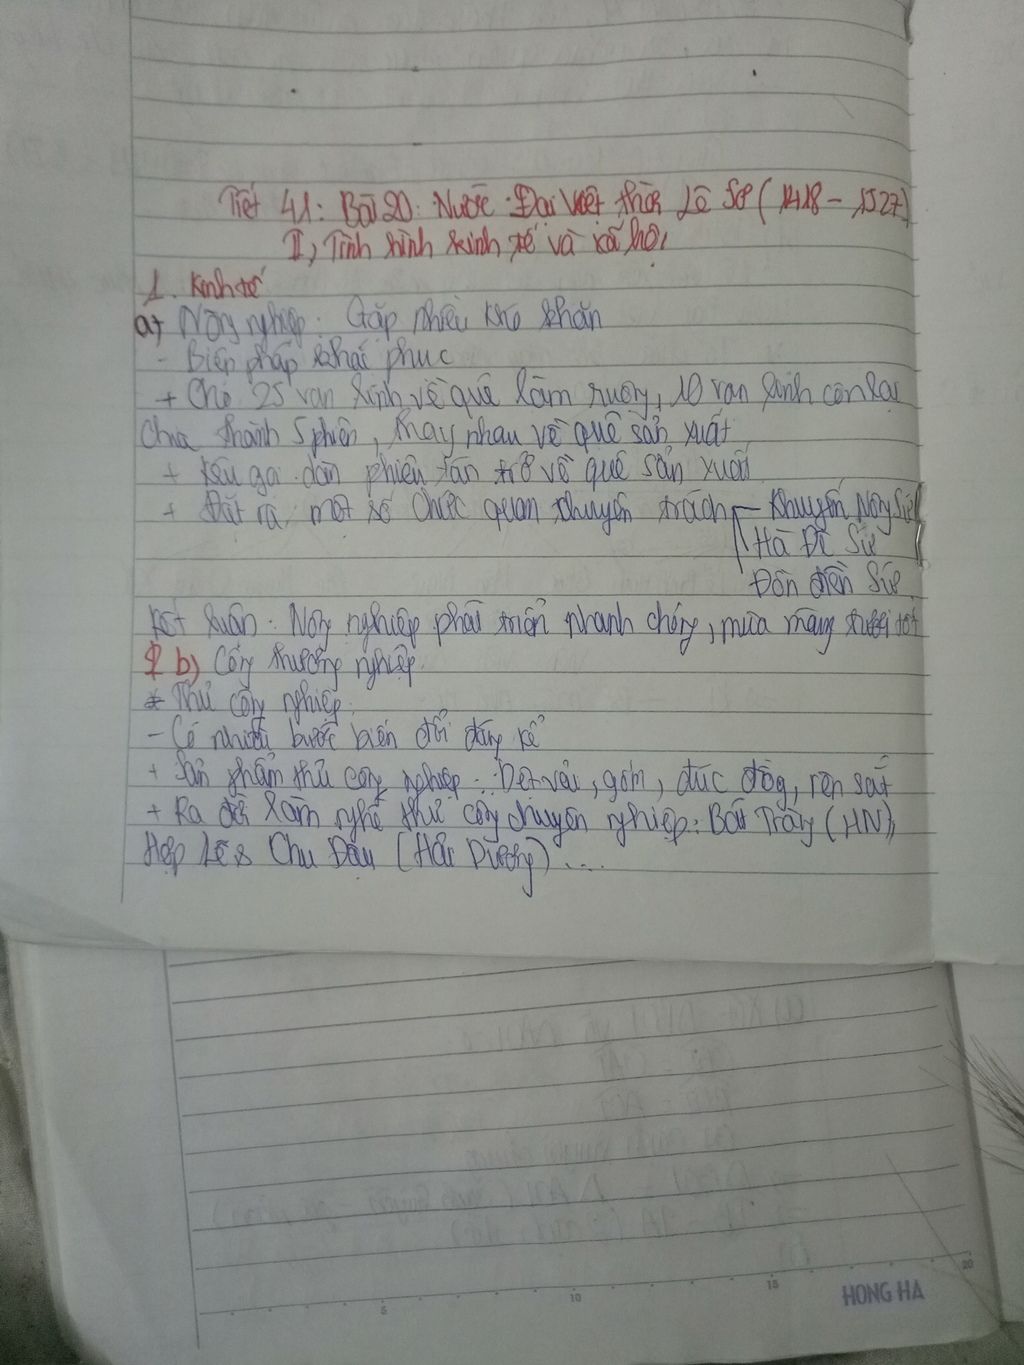 Tiết 41: Bài 20: Nước Đại Việt thời Lê Sơ (1418 - 1527)
II, Tình hình kinh tế và xã hội
1. Kinh tế
a, Nông nghiệp: Gặp nhiều khó khăn
- Biện pháp khai phục
+ Cho 25 vạn lính về quê làm ruộng, 10 vạn lính còn lại
Chia thành 5 phiên, thay nhau về quê sản xuất
+ Kêu gọi dân phiêu tán trở về quê sản xuất
+ Đặt ra một số chức quan chuyên trách - Khuyến Nông Sứ
Hà Đê Sứ
Đồn điền Sứ
Kết luận: Nông nghiệp phát triển nhanh chóng, mùa màng tươi tốt
b) Công thương nghiệp
* Thủ công nghiệp:
- Có nhiều bước biến đổi đáng kể
+ Sản phẩm thủ công nghiệp: Dệt vải, gốm, đúc đồng, rèn sắt
+ Ra đời làng nghề thủ công chuyên nghiệp: Bát Tràng (HN),
Chu Đậu (Hải Dương) ...
5
10
15
20
HONG HA